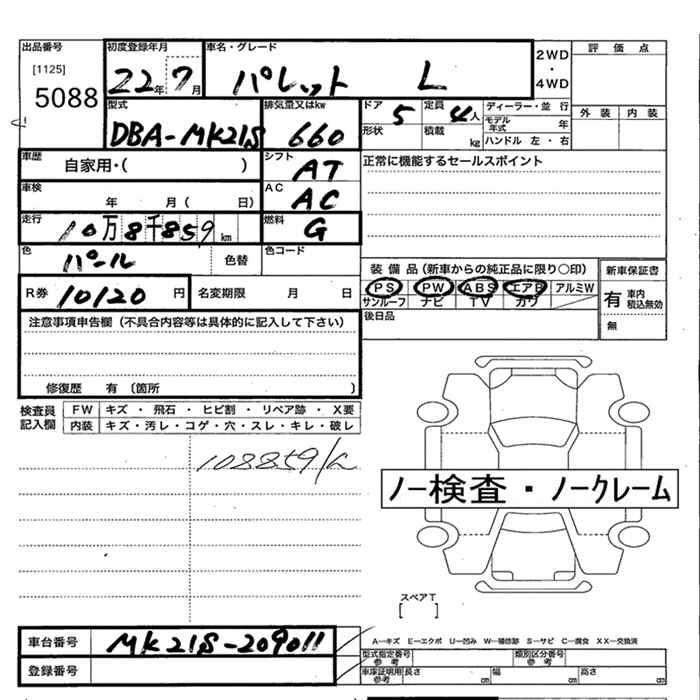 出品番号 初度登録年月 車名・グレード 2WD ・ 4WD 評価点
[1125] 5088 22年7月 パレット L 外装 内装
型式 排気量又はkw ドア 定員 ディーラー・並行
DBA-MK21S 660 5 4人 モデル年式 年
形状 積載 kg ハンドル 左・右
車歴 自家用・( ) シフト AT 正常に機能するセールスポイント
車検 年 月( 日) AC AC
走行 10万8千859km 燃料 G
色 パール 色替 色コード
装備品(新車からの純正品に限り○印) 新車保証書
R券 10120円 名変期限 月 日 PS PW ABS エアB アルミW 有 車内積込無効
サンルーフ ナビ TV カワ
注意事項申告欄(不具合内容等は具体的に記入して下さい) 後日品 無
修復歴 有〔箇所 〕
検査員記入欄 FW キズ・飛石・ヒビ割・リペア跡・X要
内装 キズ・汚レ・コゲ・穴・スレ・キレ・破レ
108859/k
ノー検査・ノークレーム
スペアT
[ ]
車台番号 MK21S-209011 A-キズ E-エクボ U-凹み W-補修跡 S-サビ C-腐食 XX-交換済
型式指定番号 参考 類別区分番号 参考
登録番号 車庫証明用 参考 長さ cm 幅 cm 高さ cm